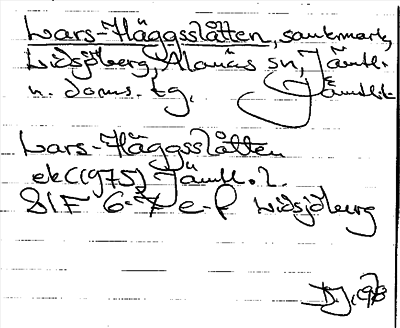 Lars-Häggsslåtten, sankmark,
Lidsjöberg, Alanäs sn, Jämtl.
n. doms. tg. Jämtl. l.
Lars-Häggsslåtten
ek (1975) Jämtl. l.
21F 6-7 e-f Lidsjöberg
D.J. 1978